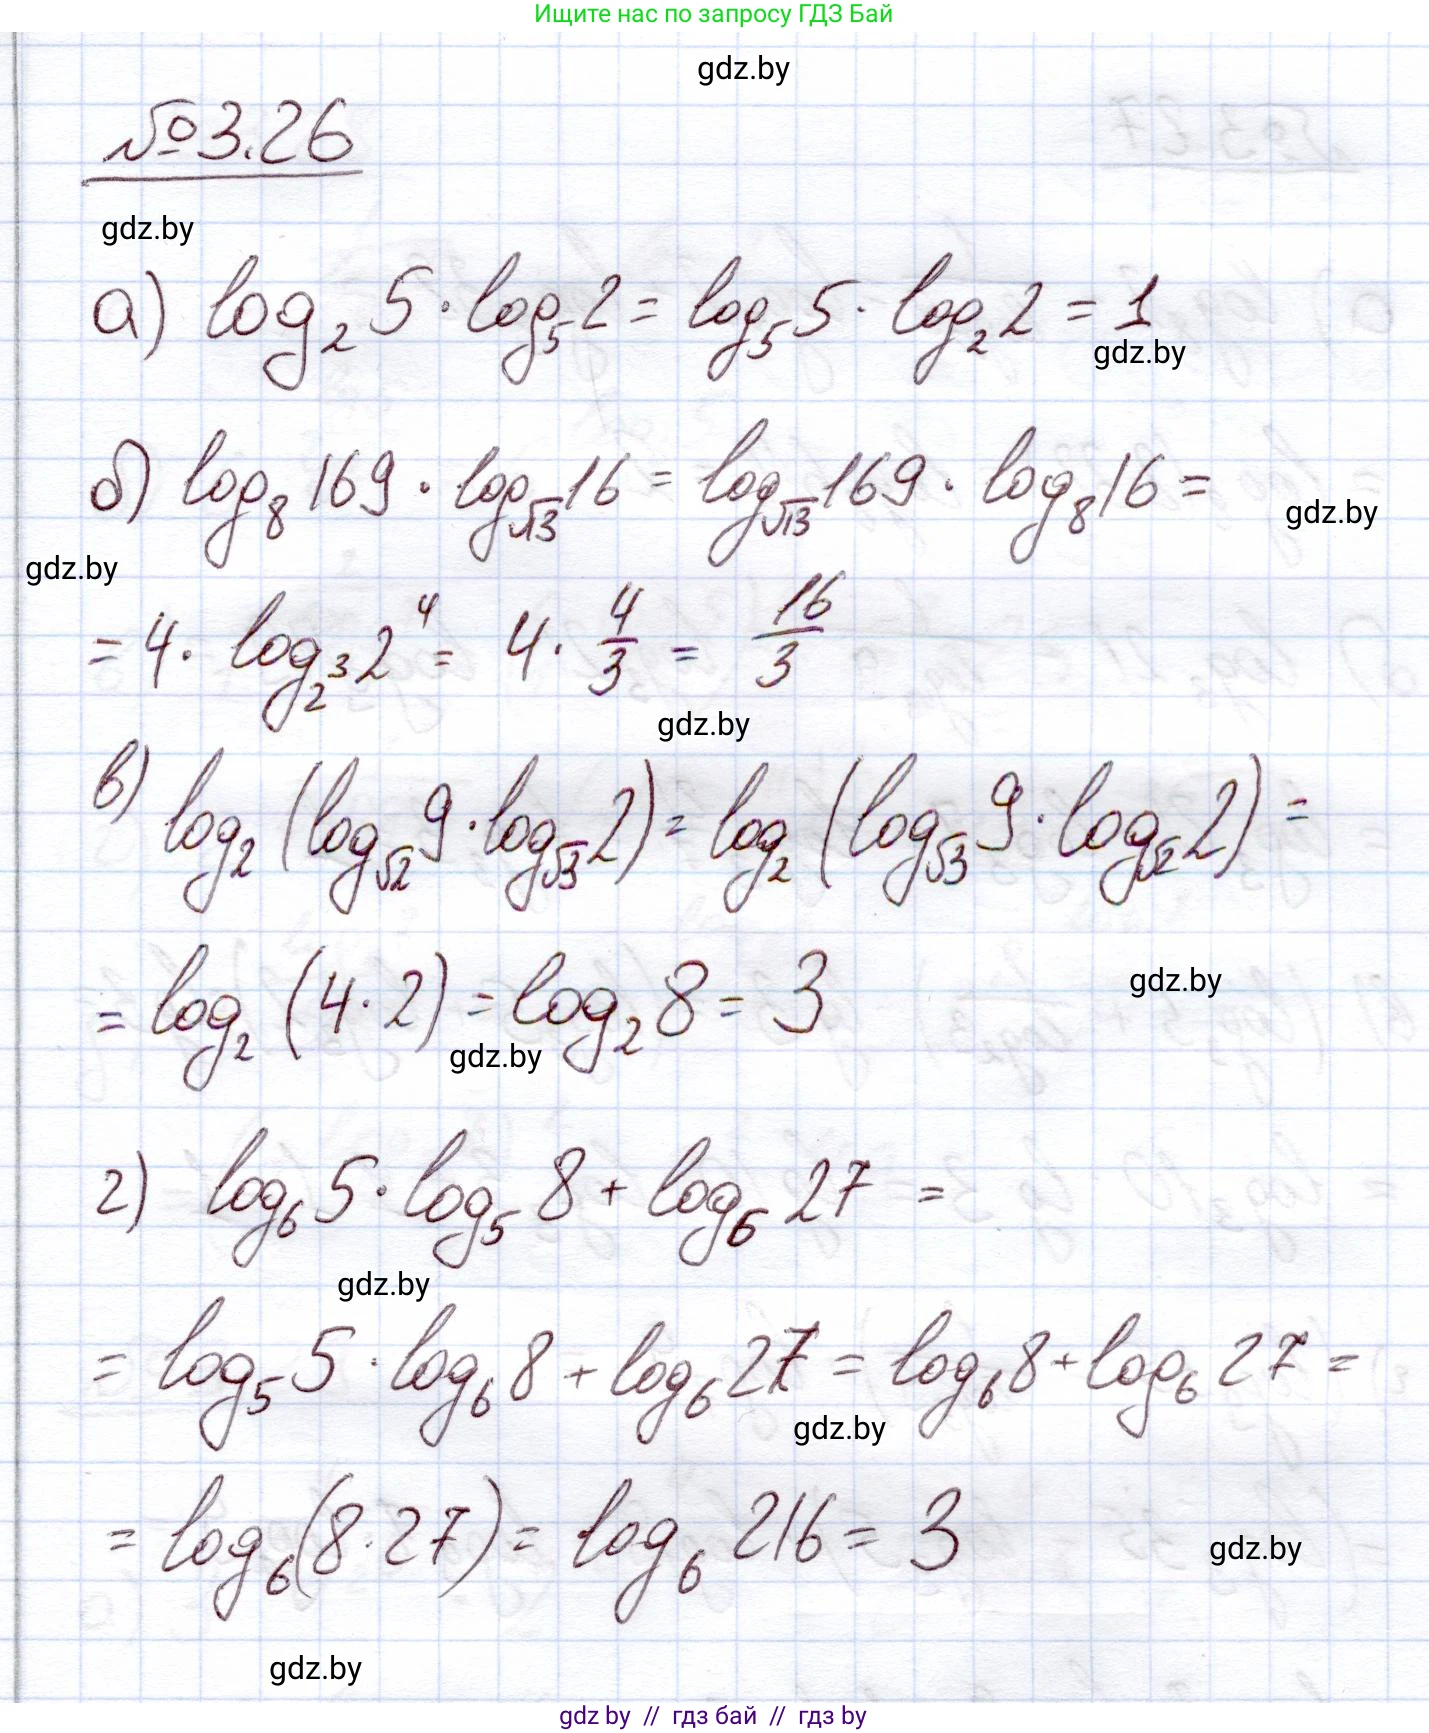 Ищите нас по запросу ГДЗ Бай
gdz.by
№3.26
gdz.by
а) log₂ 5 · log₅ 2 = log₅ 5 · log₂ 2 = 1
gdz.by
б) log₈ 169 · log_√13 16 = log_√13 169 · log₈ 16 =
gdz.by
gdz.by
= 4 · log_2³ 2⁴ = 4 · 4/3 = 16/3
gdz.by
в) log₂ (log_√2 9 · log_√3 2) = log₂ (log_√3 9 · log_√2 2) =
= log₂ (4 · 2) = log₂ 8 = 3
gdz.by
gdz.by
г) log₆ 5 · log₅ 8 + log₆ 27 =
gdz.by
= log₅ 5 · log₆ 8 + log₆ 27 = log₆ 8 + log₆ 27 =
gdz.by
= log₆ (8 · 27) = log₆ 216 = 3
gdz.by
gdz.by
gdz by // гдз бай // гдз by